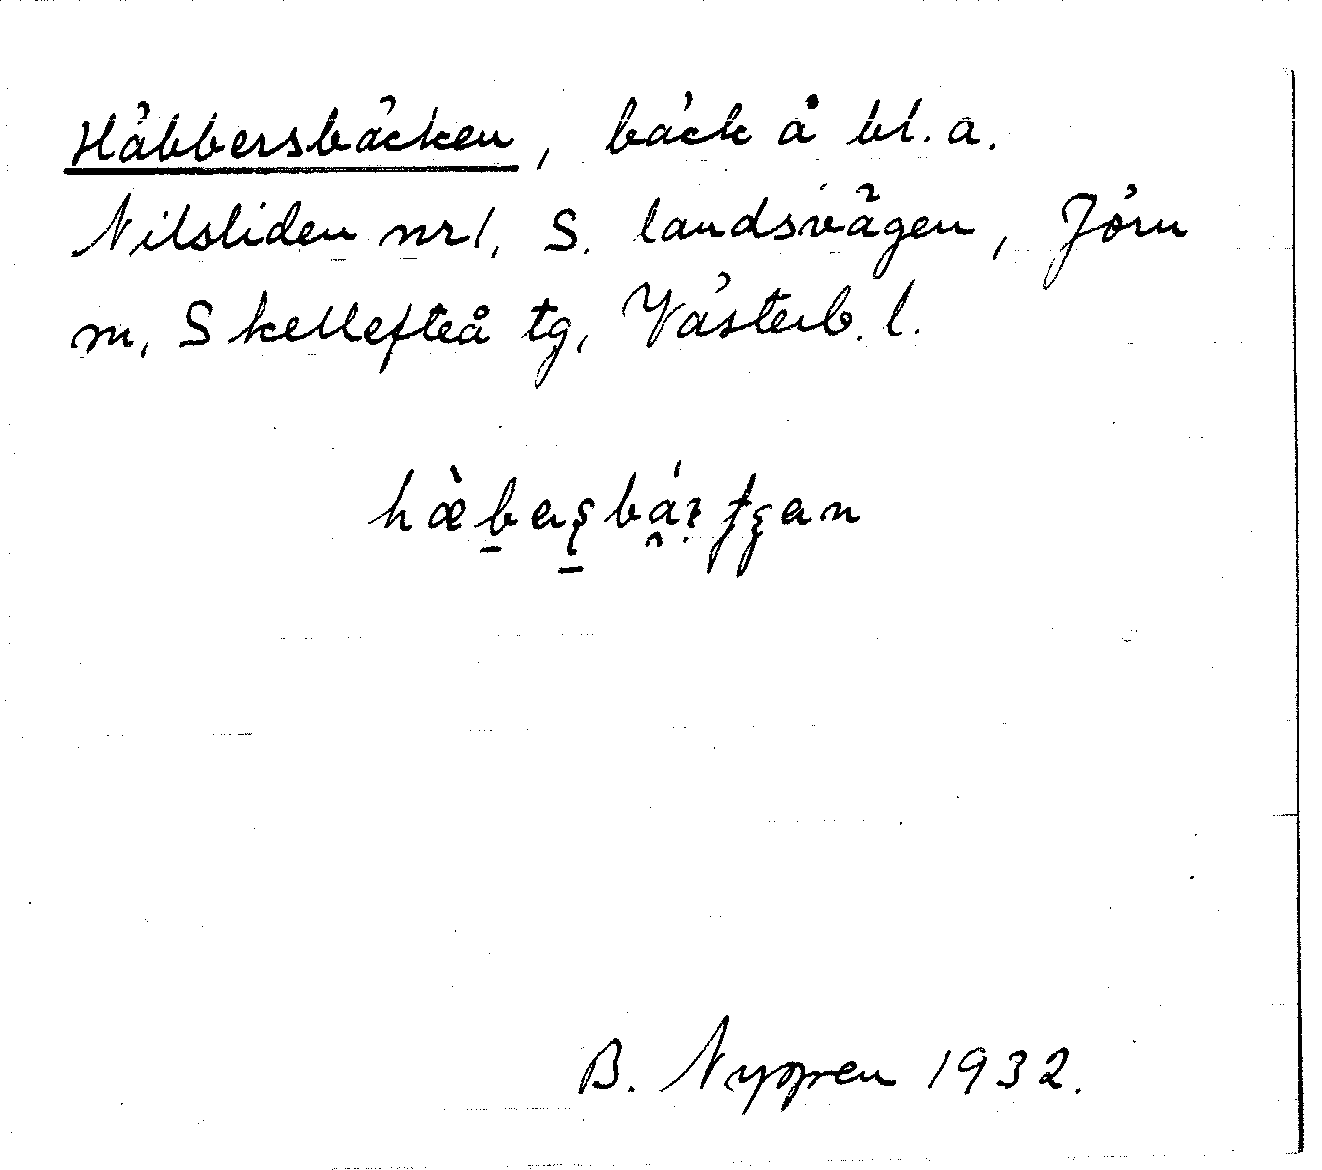 Häbbersbäcken, bäck å bl. a.
Nilsliden nr 1, S. landsvägen, Jörn
sn, Skellefteå tg, Västerb. l.
B. Nygren 1932.